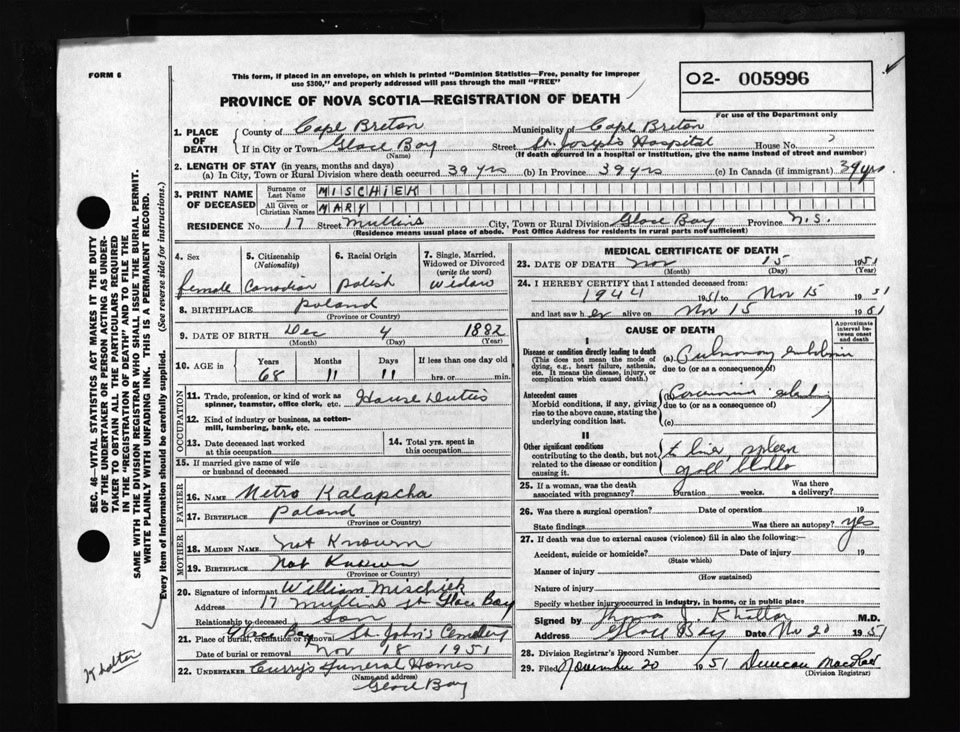 FORM 6
This form, if placed in an envelope, on which is printed "Dominion Statistics—Free, penalty for improper
use $300," and properly addressed will pass through the mail "FREE"
O2- 005996
For use of the Department only
PROVINCE OF NOVA SCOTIA—REGISTRATION OF DEATH
1. PLACE OF DEATH
County of Cape Breton Municipality of Cape Breton
If in City or Town Glace Bay Street St. Joseph's Hospital House No.
(Name) (If death occurred in a hospital or institution, give the name instead of street and number)
2. LENGTH OF STAY (in years, months and days)
(a) In City, Town or Rural Division where death occurred 39 yrs (b) In Province 39 yrs (c) In Canada (if immigrant) 39 yrs
3. PRINT NAME OF DECEASED
Surname or Last Name MISCHIEK
All Given or Christian Names MARY
RESIDENCE No. 17 Street Mullins City, Town or Rural Division Glace Bay Province N.S.
(Residence means usual place of abode. Post Office Address for residents in rural parts not sufficient)
4. Sex
female
5. Citizenship
(Nationality)
Canadian
6. Racial Origin
Polish
7. Single, Married,
Widowed or Divorced
(write the word)
Widow
8. BIRTHPLACE Poland
(Province or Country)
9. DATE OF BIRTH Dec 4 1882
(Month) (Day) (Year)
10. AGE in Years Months Days If less than one day old
68 11 11 hrs. or min.
OCCUPATION
11. Trade, profession, or kind of work as
spinner, teamster, office clerk, etc. House Duties
12. Kind of industry or business, as cotton-
mill, lumbering, bank, etc.
13. Date deceased last worked
at this occupation
14. Total yrs. spent in
this occupation
15. If married give name of wife
or husband of deceased
FATHER
16. NAME Metro Kalapcha
17. BIRTHPLACE Poland
(Province or Country)
MOTHER
18. MAIDEN NAME Not Known
19. BIRTHPLACE Not Known
(Province or Country)
20. Signature of informant William Mischiek
Address 17 Mullins St Glace Bay
Relationship to deceased Son
21. Glace Bay St. John's Cemetery
Place of burial, cremation or removal
Date of burial or removal Nov 18 1951
22. UNDERTAKER Curry's Funeral Homes
(Name and address)
Glace Bay
MEDICAL CERTIFICATE OF DEATH
23. DATE OF DEATH Nov 15 1951
(Month) (Day) (Year)
24. I HEREBY CERTIFY that I attended deceased from:
1944 1951 to Nov 15 1951
and last saw h er alive on Nov 15 1951
CAUSE OF DEATH
Approximate
interval be-
tween onset
and death
I
Disease or condition directly leading to death
(This does not mean the mode of
dying, e.g., heart failure, asthenia,
etc. It means the disease, injury, or
complication which caused death.)
(a) Pulmonary embolism
due to (or as a consequence of)
Antecedent causes
Morbid conditions, if any, giving
rise to the above cause, stating the
underlying condition last.
(b) Carcinoma
due to (or as a consequence of)
(c)
II
Other significant conditions
contributing to the death, but not
related to the disease or condition
causing it.
to liver, spleen
gall bladder
25. If a woman, was the death
associated with pregnancy? Duration weeks. Was there a delivery?
26. Was there a surgical operation? Date of operation 19
State findings Was there an autopsy? yes
27. If death was due to external causes (violence) fill in also the following:—
Accident, suicide or homicide? Date of injury 19
(State which)
Manner of injury
(How sustained)
Nature of injury
Specify whether injury occurred in industry, in home, or in public place
Signed by J. Khattar M.D.
Address Glace Bay Date Nov 20 1951
28. Division Registrar's Record Number
29. Filed November 20 1951 Duncan
(Division Registrar)
SEC. 46—VITAL STATISTICS ACT MAKES IT THE DUTY
OF THE UNDERTAKER OR PERSON ACTING AS UNDER-
TAKER TO OBTAIN ALL THE PARTICULARS REQUIRED
IN THE "REGISTRATION OF DEATH" AND TO FILE THE
SAME WITH THE DIVISION REGISTRAR WHO SHALL ISSUE THE BURIAL PERMIT.
WRITE PLAINLY WITH UNFADING INK. THIS IS A PERMANENT RECORD.
Every item of information should be carefully supplied. (See reverse side for instructions.)